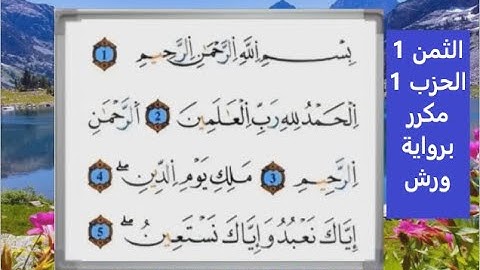 بِسْمِ اِ۬للَّهِ اِ۬لرَّحْمَٰنِ اِ۬لرَّحِيمِ 1
اِ۬لْحَمْدُ لِلهِ رَبِّ اِ۬لْعَٰلَمِينَ 2 اَ۬لرَّحْمَٰنِ
اِ۬لرَّحِيمِ 3 مَلِكِ يَوْمِ اِ۬لدِّينِۖ 4
إِيَّاكَ نَعْبُدُ وَإِيَّاكَ نَسْتَعِينُۖ 5
الثمن 1
الحزب 1
مكرر
برواية
ورش